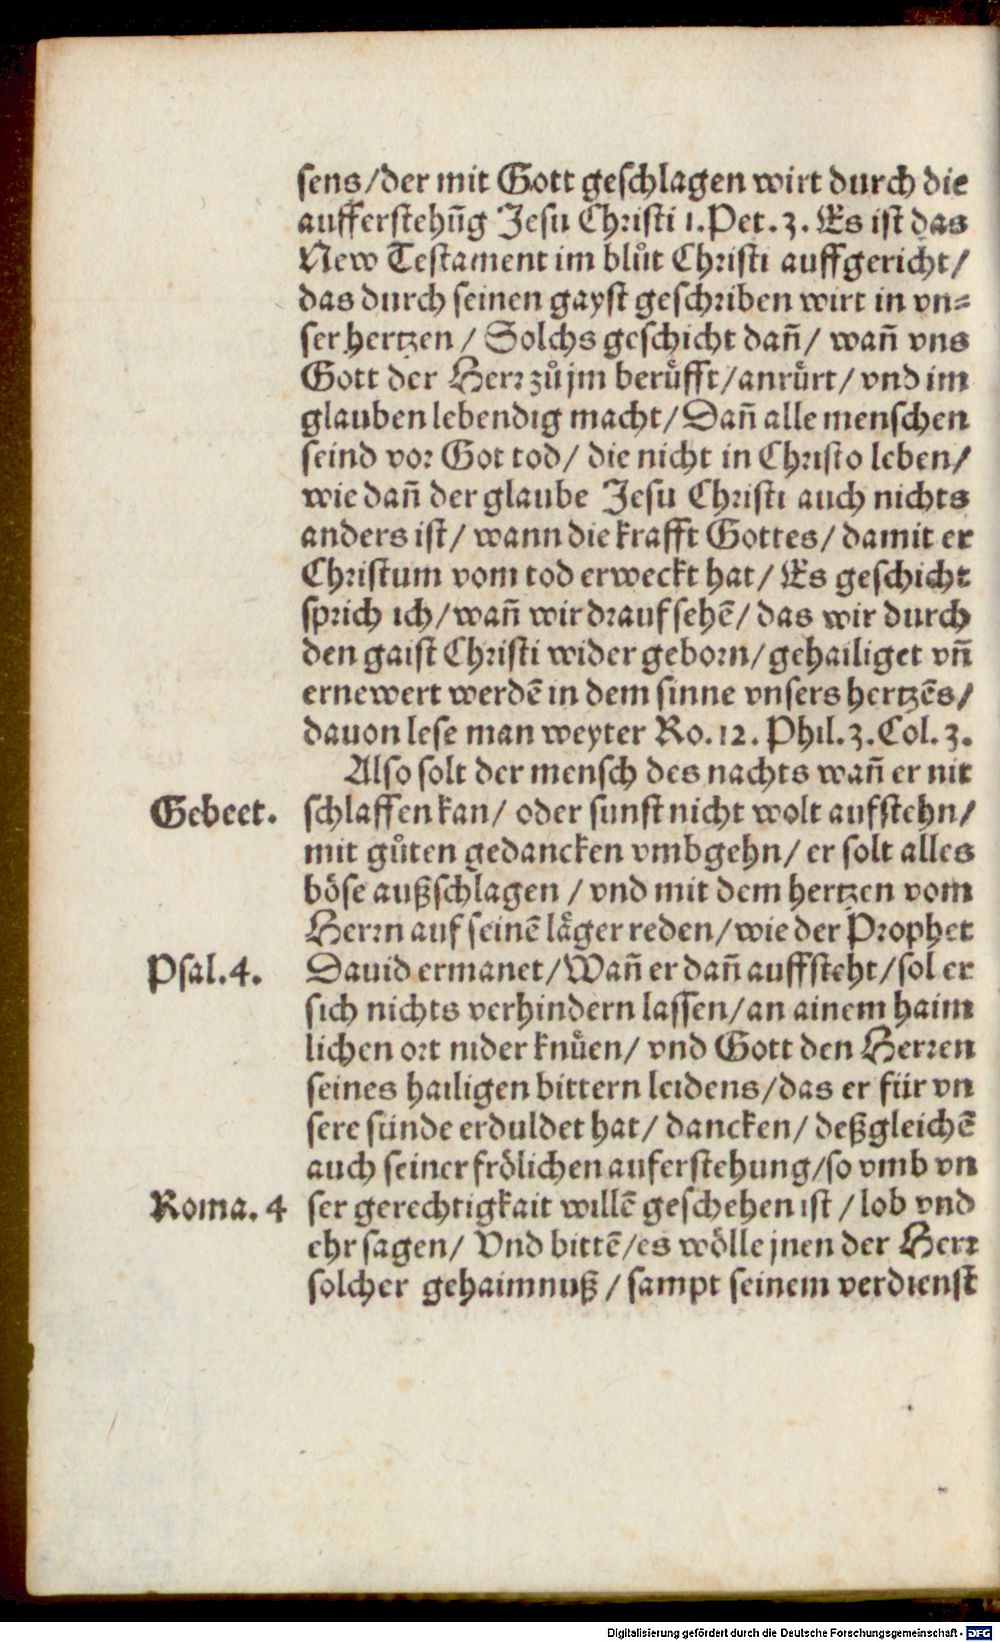 sens/der mit Gott geschlagen wirt durch die
aufferstehũg Jesu Christi 1.Pet.3. Es ist das
New Testament im blůt Christi auffgericht/
das durch seinen gayst geschriben wirt in vn=
ser hertzen / Solchs geschicht dañ/ wañ vns
Gott der Herr zů jm berůfft/anrůrt/ vnd im
glauben lebendig macht/ Dañ alle menschen
seind vor Got tod/ die nicht in Christo leben/
wie dañ der glaube Jesu Christi auch nichts
anders ist/ wann die krafft Gottes/ damit er
Christum vom tod erweckt hat/ Es geschicht
sprich ich/wañ wir drauf sehẽ/ das wir durch
den gaist Christi wider geborn/ gehailiget vñ
ernewert werdẽ in dem sinne vnsers hertzẽs/
dauon lese man weyter Ro.12. Phil.3.Col.3.
Also solt der mensch des nachts wañ er nit
Gebeet. schlaffen kan/ oder sunst nicht wolt aufstehn/
mit gůten gedancken vmbgehn/ er solt alles
böse außschlagen / vnd mit dem hertzen vom
Herrn auf seinẽ läger reden/wie der Prophet
Psal.4. Dauid ermanet/Wañ er dañ auffsteht/sol er
sich nichts verhindern lassen/an ainem haim
lichen ort nider knüen/ vnd Gott den Herren
seines hailigen bittern leidens/das er für vn
sere sünde erduldet hat/ dancken/ deßgleichẽ
auch seiner frölichen auferstehung/so vmb vn
Roma. 4 ser gerechtigkait willẽ geschehen ist / lob vnd
ehr sagen/ Vnd bittẽ/es wölle jnen der Herr
solcher gehaimnuß / sampt seinem verdienst
Digitalisierung gefördert durch die Deutsche Forschungsgemeinschaft - DFG